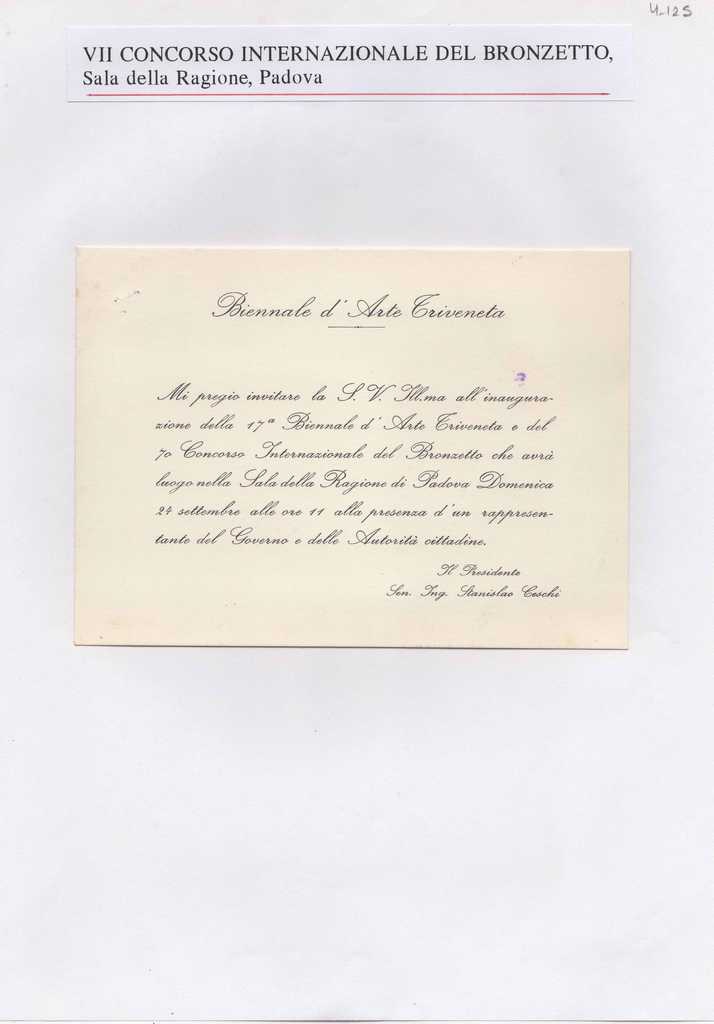 4-125
VII CONCORSO INTERNAZIONALE DEL BRONZETTO,
Sala della Ragione, Padova
Biennale d' Arte Triveneta
Mi pregio invitare la S. V. Ill.ma all'inaugura-
zione della 17ª Biennale d' Arte Triveneta e del
7o Concorso Internazionale del Bronzetto che avrà
luogo nella Sala della Ragione di Padova Domenica
24 settembre alle ore 11 alla presenza d'un rappresen-
tante del Governo e delle Autorità cittadine.
Il Presidente
Sen. Ing. Stanislao Ceschi